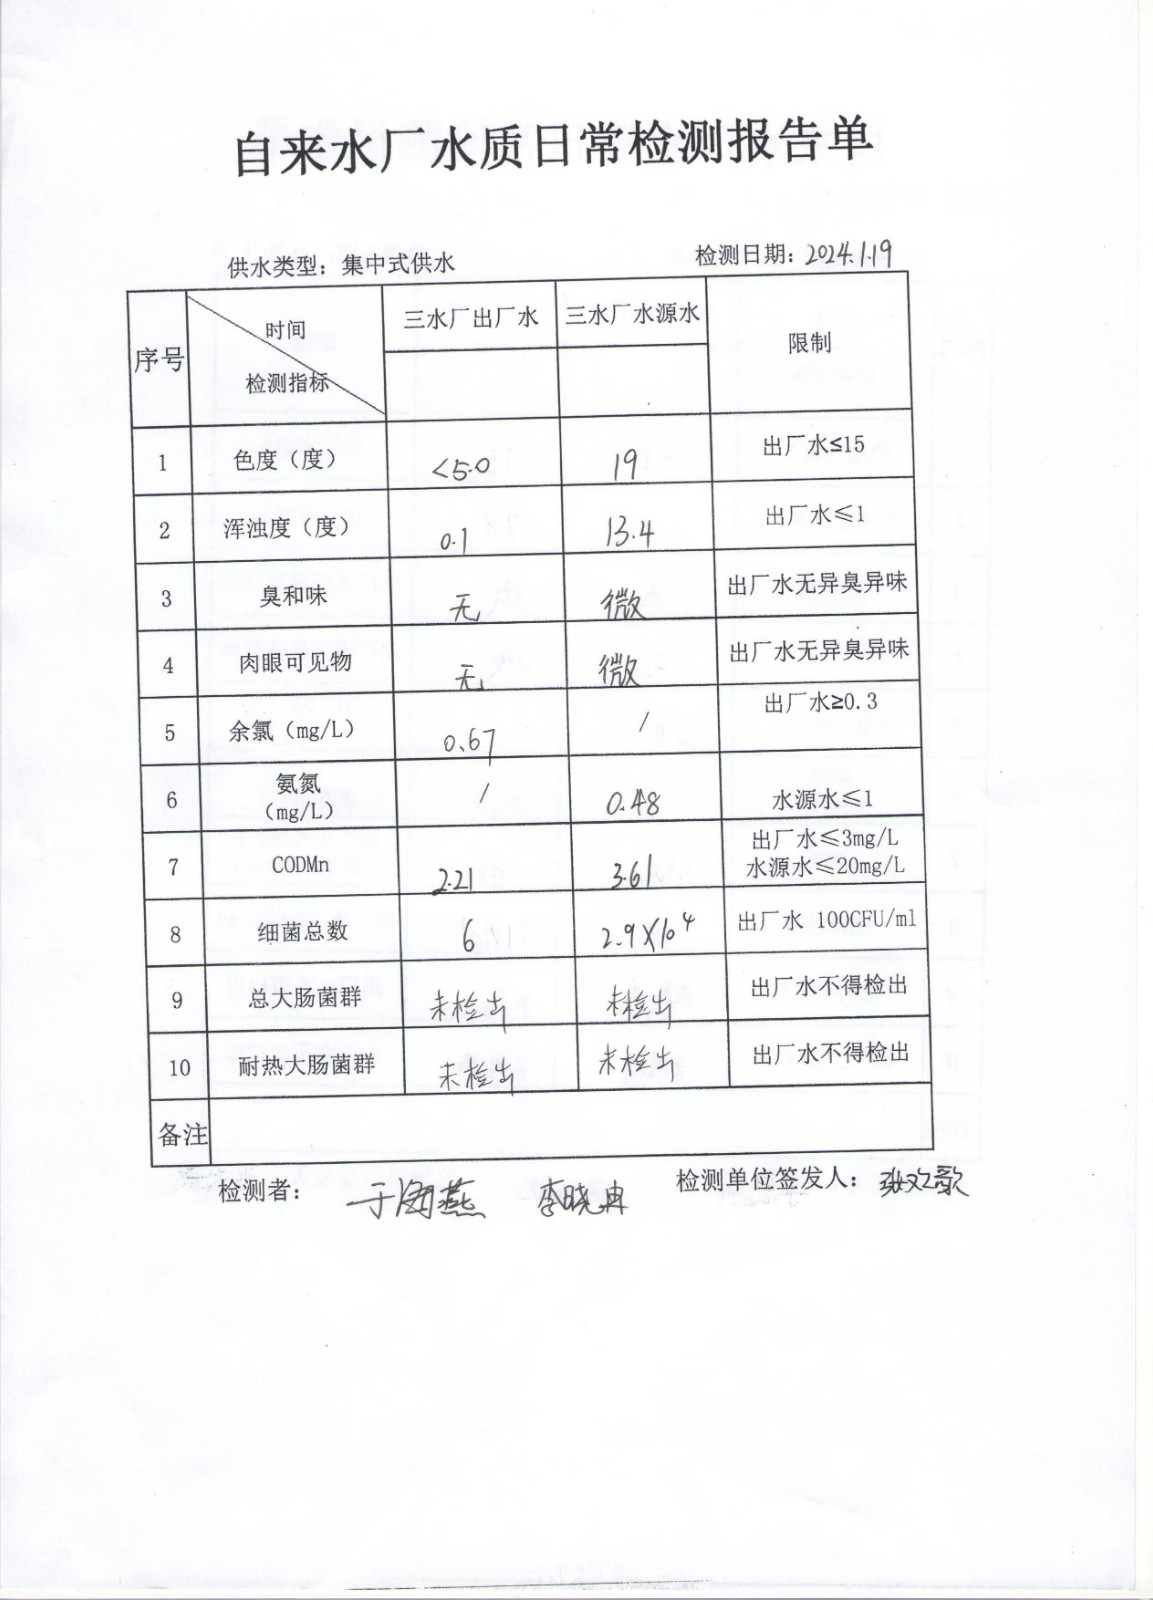 自来水厂水质日常检测报告单
供水类型：集中式供水 检测日期：2024.1.19
序号 时间 检测指标 三水厂出厂水 三水厂水源水 限制
1 色度（度） <5.0 19 出厂水≤15
2 浑浊度（度） 0.1 13.4 出厂水≤1
3 臭和味 无 微 出厂水无异臭异味
4 肉眼可见物 无 微 出厂水无异臭异味
5 余氯（mg/L） 0.67 / 出厂水≥0.3
6 氨氮 （mg/L） / 0.48 水源水≤1
7 CODMn 2.21 3.61 出厂水≤3mg/L 水源水≤20mg/L
8 细菌总数 6 2.9×10⁴ 出厂水 100CFU/ml
9 总大肠菌群 未检出 未检出 出厂水不得检出
10 耐热大肠菌群 未检出 未检出 出厂水不得检出
备注
检测者： 于海燕 李晓冉 检测单位签发人：